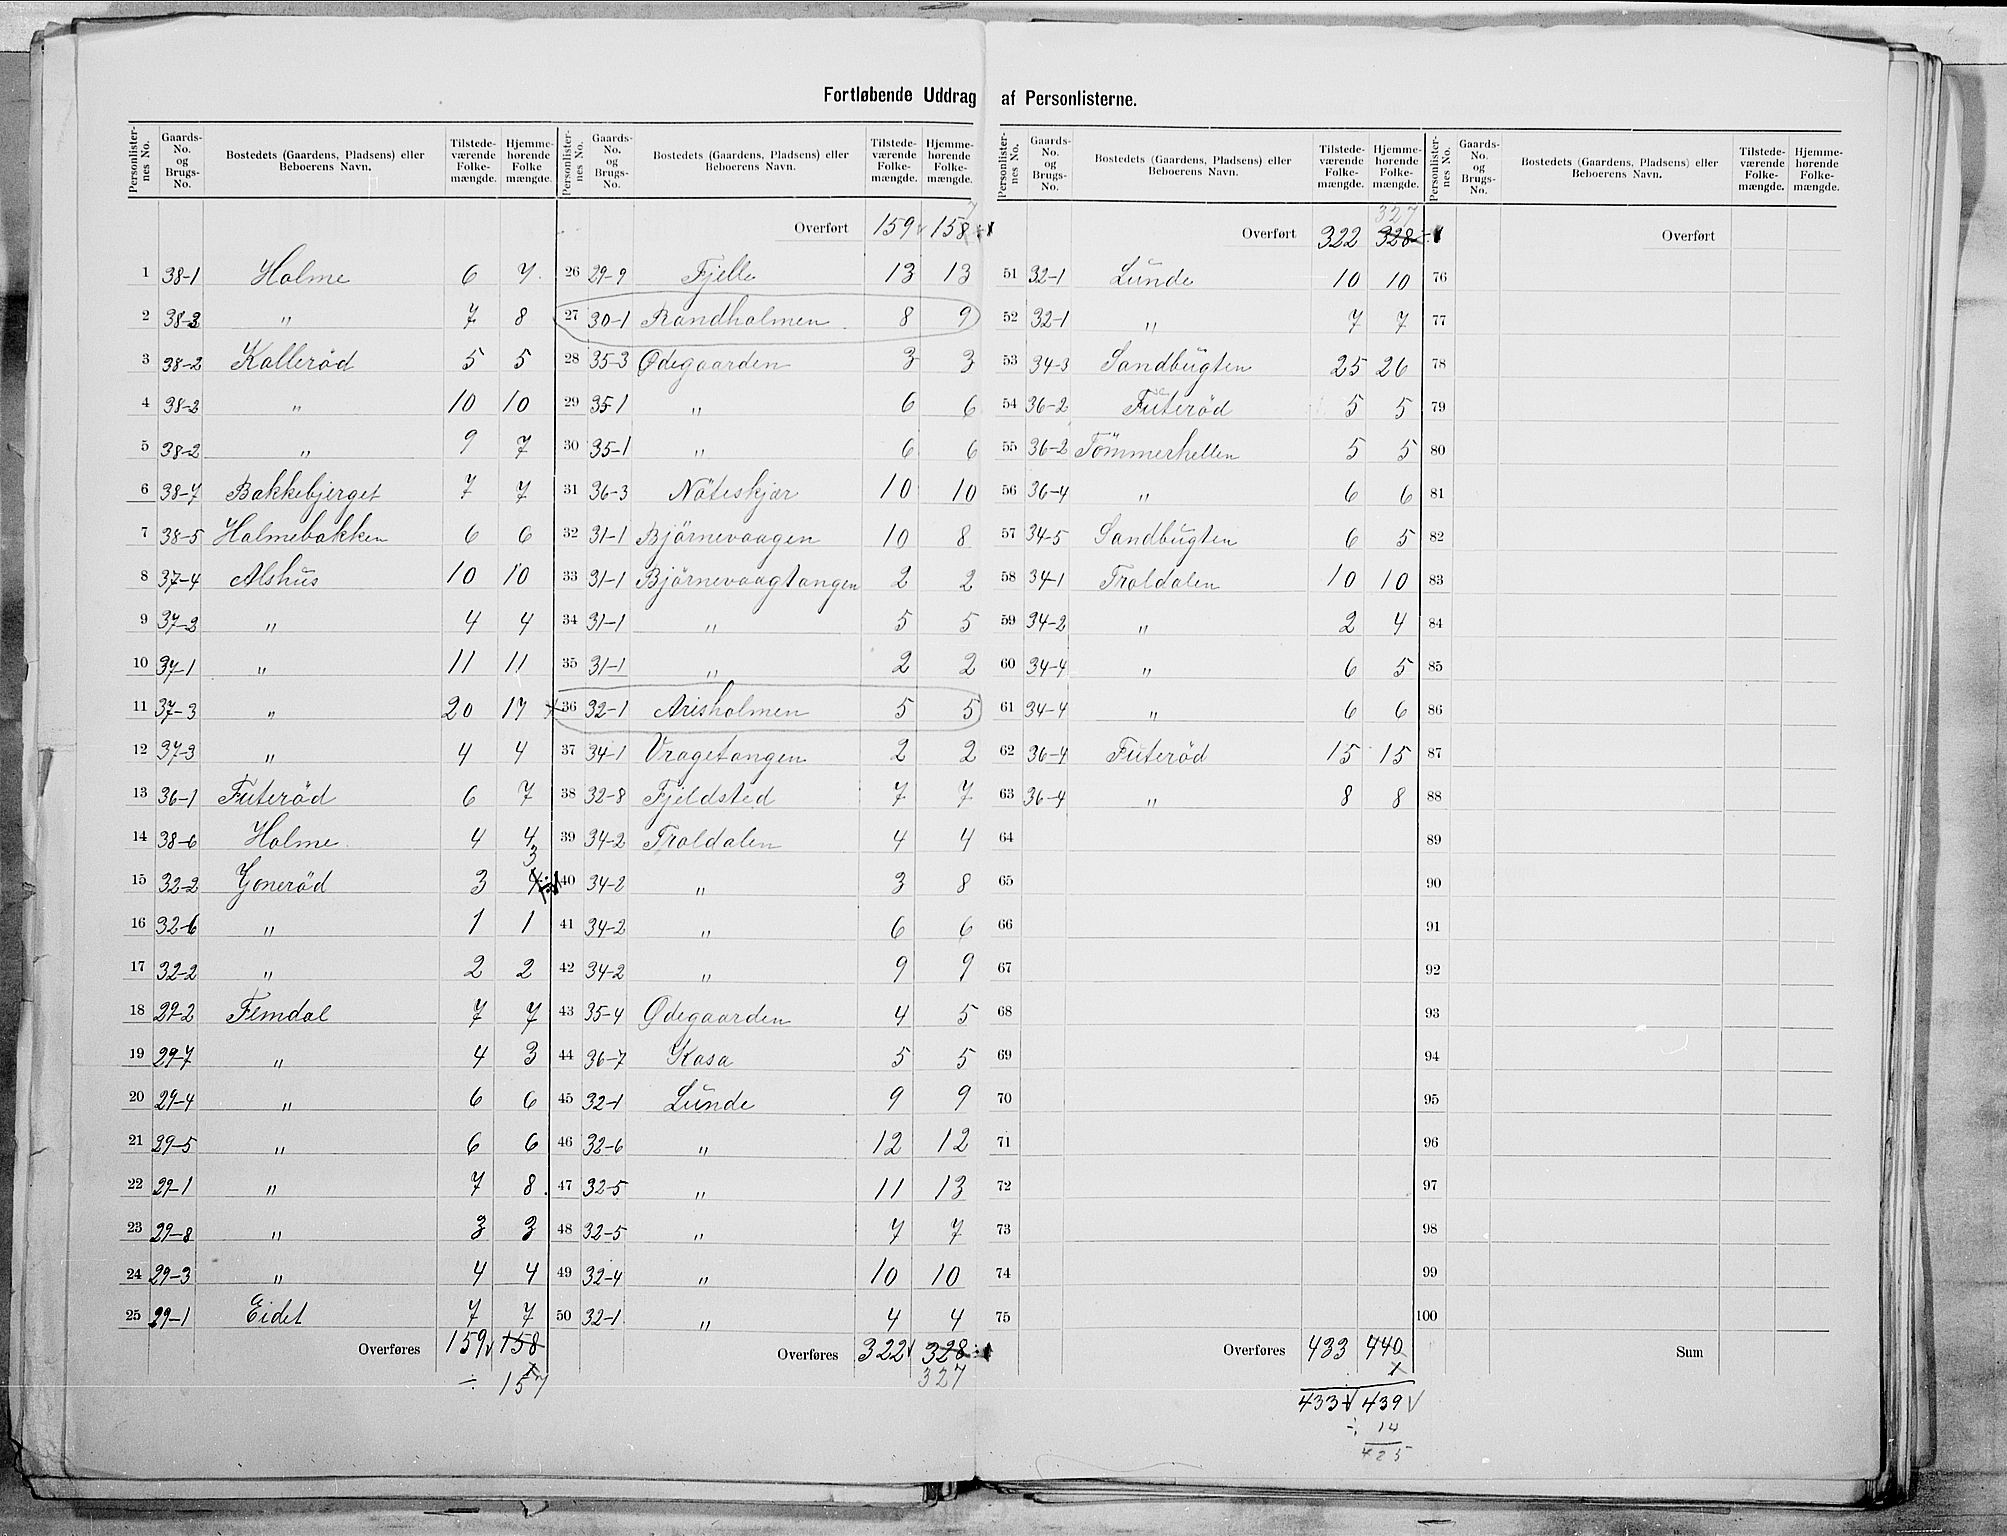 Fortløbende Uddrag af Personlisterne.
Personlister- nes No. | Gaards- No. og Brugs- No. | Bostedets (Gaardens, Pladsens) eller Beboerens Navn. | Tilstede- værende Folke- mængde. | Hjemme- hørende Folke mængde.
1 38-1 Holme 6 7
2 38-3 " 7 8
3 38-2 Kollerød 5 5
4 38-2 " 10 10
5 38-2 " 9 7
6 38-7 Bakkebjerget 7 7
7 38-5 Holmebakken 6 6
8 37-4 Alshus 10 10
9 37-2 " 4 4
10 37-1 " 11 11
11 37-3 " 20 17
12 37-3 " 4 4
13 36-1 Futerød 6 7
14 38-6 Holme 4 4
15 32-2 Gonerød 3 4 3
16 32-6 " 1 1
17 32-2 " 2 2
18 29-2 Femdal 7 7
19 29-7 " 4 3
20 29-4 " 6 6
21 29-5 " 6 6
22 29-1 " 7 8
23 29-8 " 3 3
24 29-3 " 4 4
25 29-1 Eidet 7 7
Overføres 159 158
÷ 157
Personlister- nes No. | Gaards- No. og Brugs- No. | Bostedets (Gaardens, Pladsens) eller Beboerens Navn. | Tilstede- værende Folke- mængde. | Hjemme- hørende Folke- mængde.
Overført 159 158 7
26 29-9 Fjelle 13 13
27 30-1 Randholmen 8 9
28 35-3 Ødegaarden 3 3
29 35-1 " 6 6
30 35-1 " 6 6
31 36-3 Nöteskjær 10 10
32 31-1 Björnevaagen 10 8
33 31-1 Björnevaagtangen 2 2
34 31-1 " 5 5
35 31-1 " 2 2
36 32-1 Arisholmen 5 5
37 34-1 Vragetangen 2 2
38 32-8 Fjeldsted 7 7
39 34-2 Troldalen 4 4
40 34-2 " 3 8
41 34-2 " 6 6
42 34-2 " 9 9
43 35-4 Ødegaarden 4 5
44 36-7 Kasa 5 5
45 32-1 Lunde 9 9
46 32-6 " 12 12
47 32-5 " 11 13
48 32-5 " 7 7
49 32-4 " 10 10
50 32-1 " 4 4
Overføres 322 328
327
Personlister- nes No. | Gaards- No. og Brugs- No. | Bostedets (Gaardens, Pladsens) eller Beboerens Navn. | Tilstede- værende Folke- mængde. | Hjemme- hørende Folke- mængde.
327
Overført 322 328
51 32-1 Lunde 10 10
52 32-1 " 7 7
53 34-3 Sandbugten 25 26
54 36-2 Futerød 5 5
55 36-2 Tömmerhellen 5 5
56 36-4 " 6 6
57 34-5 Sandbugten 6 5
58 34-1 Troldalen 10 10
59 34-2 " 2 4
60 34-4 " 6 5
61 34-4 " 6 6
62 36-4 Futerød 15 15
63 36-4 " 8 8
64
65
66
67
68
69
70
71
72
73
74
75
Overføres 433 440
433 439
÷ 14
425
Personlister- nes No. | Gaards- No. og Brugs- No. | Bostedets (Gaardens, Pladsens) eller Beboerens Navn. | Tilstede- værende Folke- mængde. | Hjemme- hørende Folke- mængde.
Overført
76
77
78
79
80
81
82
83
84
85
86
87
88
89
90
91
92
93
94
95
96
97
98
99
100
Sum